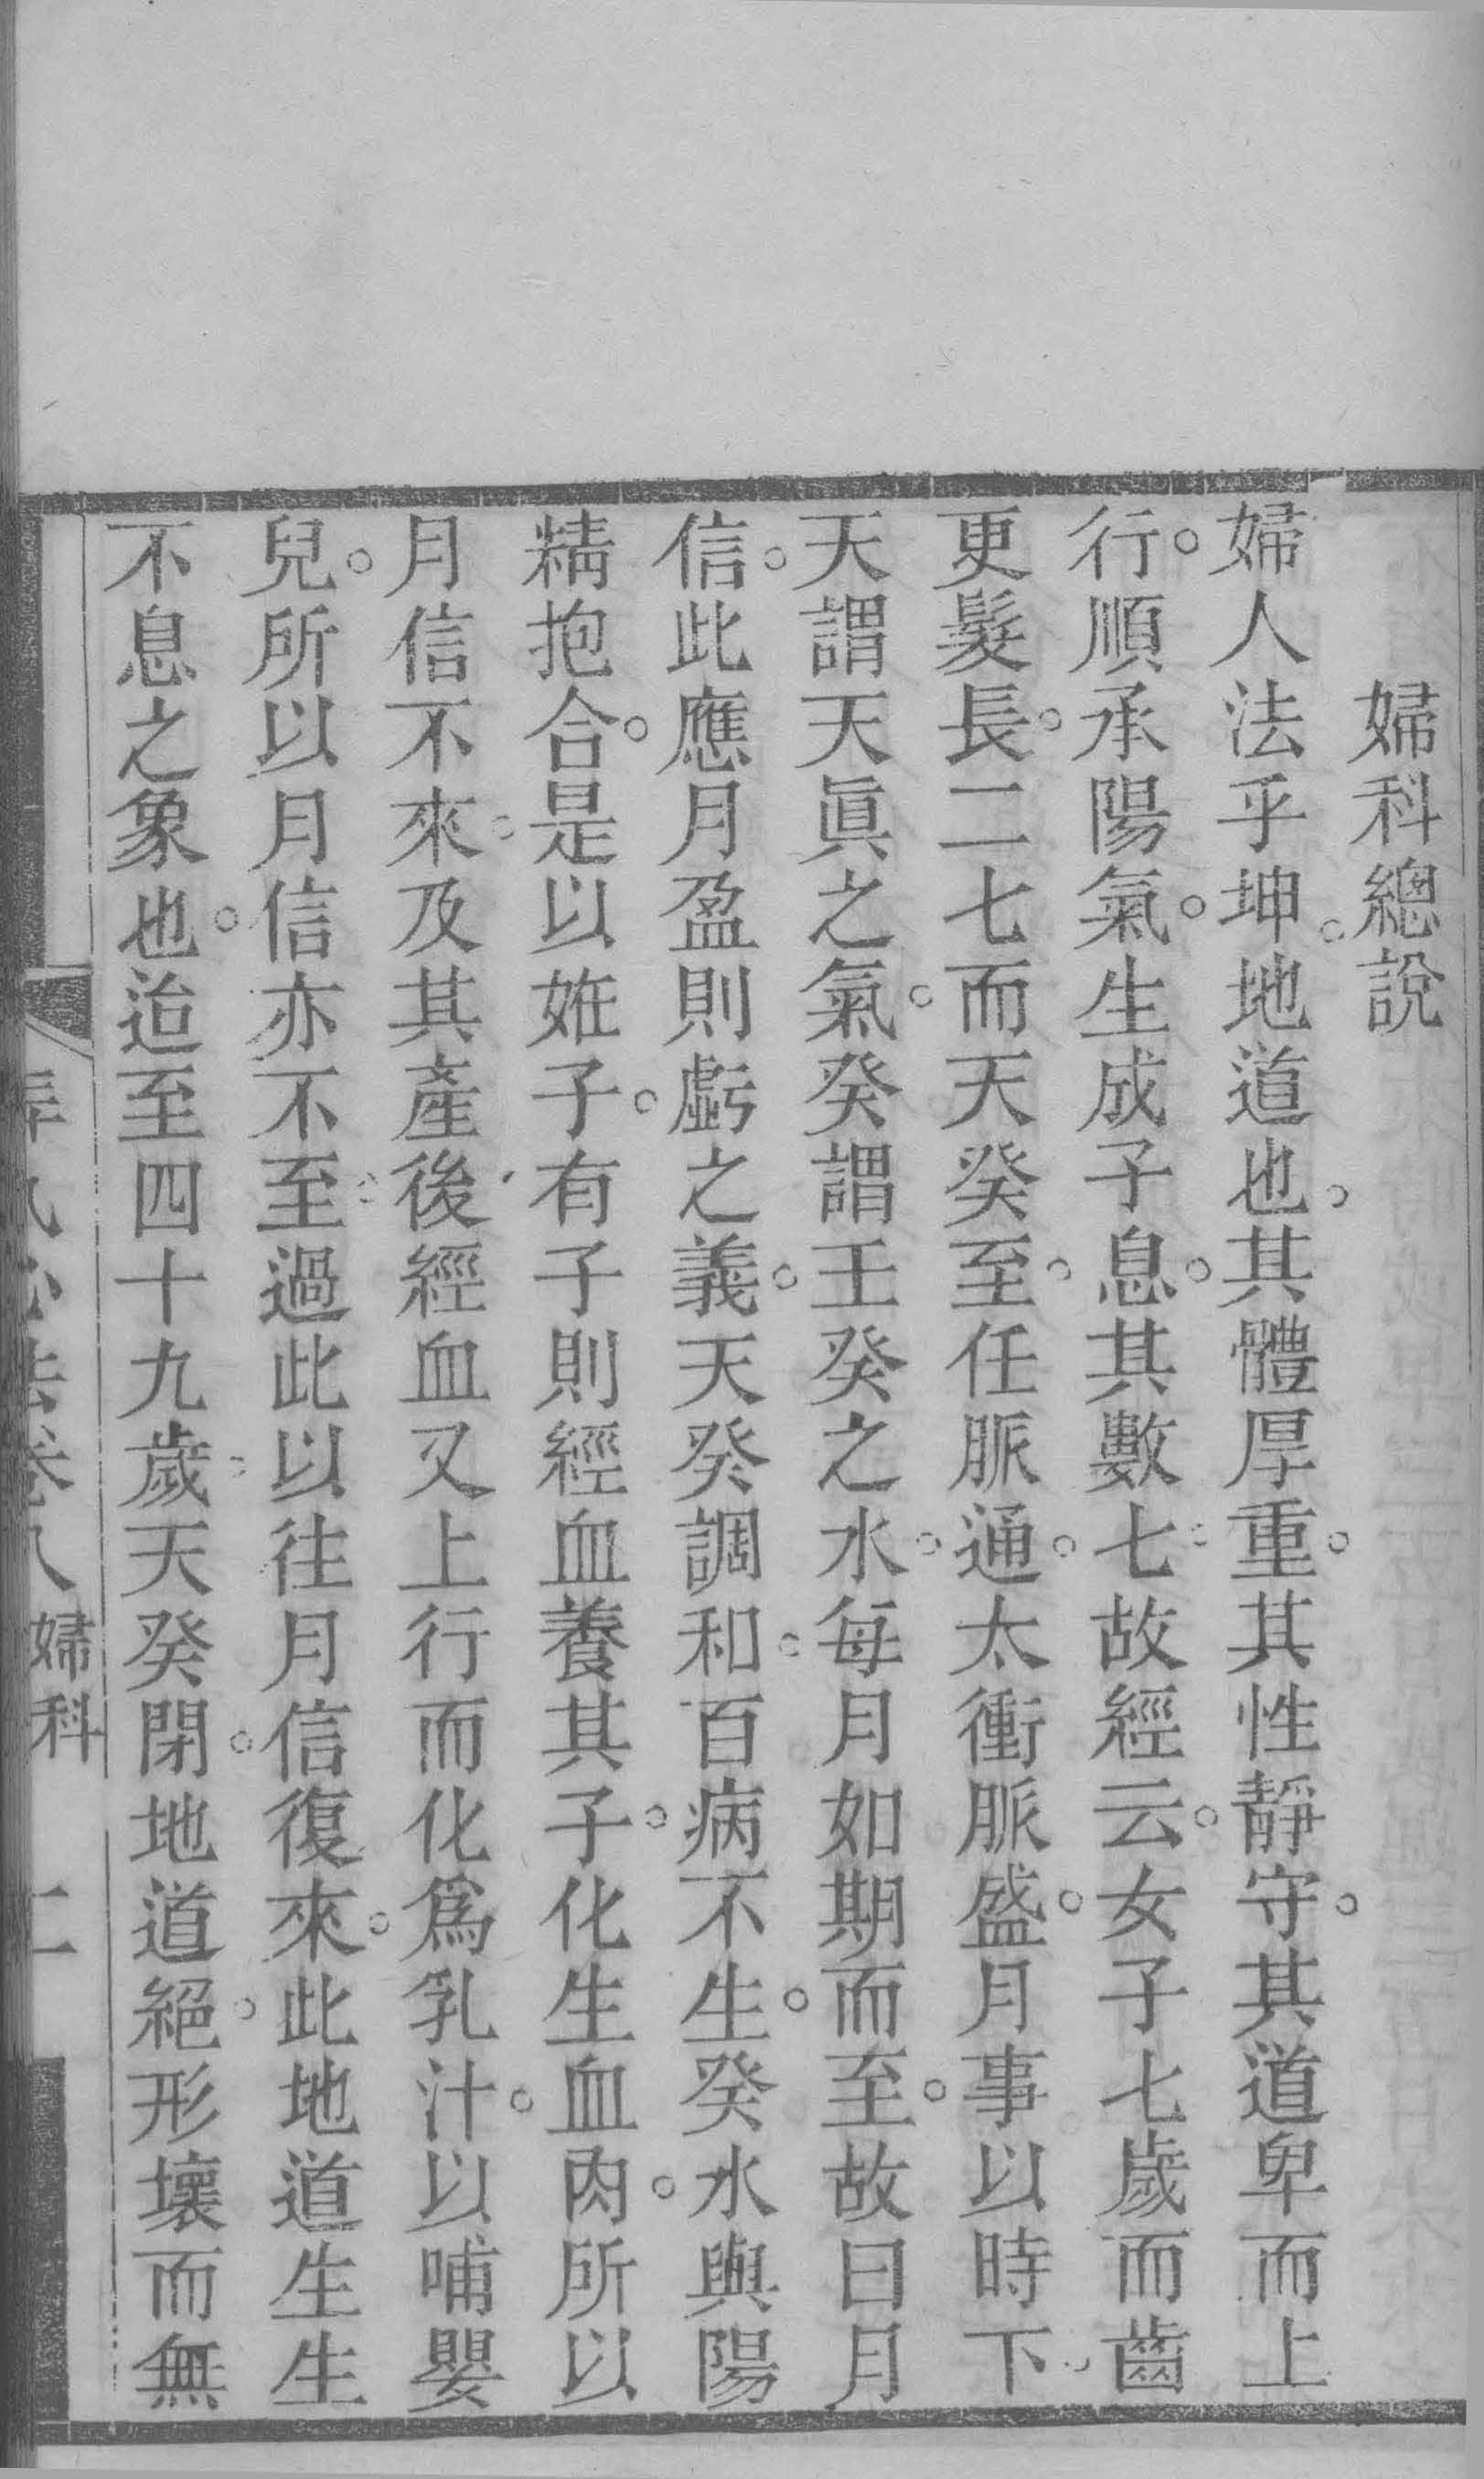 婦科總說
婦人法乎坤。地道也。其體厚重。其性靜守。其道卑而上
行。順承陽氣。生成子息。其數七。故經云。女子七歲而齒
更髮長。二七而天癸至。任脈通。太衝脈盛。月事以時下。
天謂天眞之氣。癸謂壬癸之水。每月如期而至。故曰月
信。此應月盈則虧之義。天癸調和。百病不生。癸水與陽
精抱合。是以姙子。有子則經血養其子。化生血肉。所以
月信不來。及其產後、經血又上行而化爲乳汁。以哺嬰
兒。所以月信亦不至。過此以往月信復來。此地道生生
不息之象也。迨至四十九歲。天癸閉。地道絕。形壞而無
卷八 婦科 二